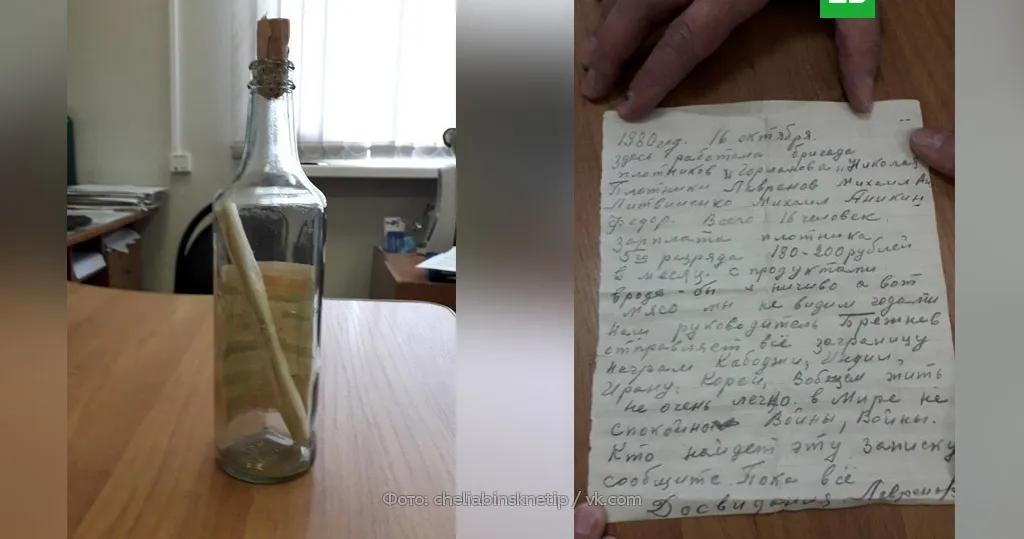 1980 год. 16 октября.
здесь работала бригада
плотников "Горланова" Николая
Плотники Лавренов Михаил Ан
Литвиненко Михаил Аникин
Федор. Всего 16 человек.
зарплата плотника
5го разряда 180-200 рублей
в месяц. с продуктами
вроде-бы и ничиво а вот
мясо мы не видим годами
наш руководитель Брежнев
отправляет всё заграницу
неграм Кабоджи, Индии,
Ирану. Корей, Вобщем жить
не очень легко. в Мире не
спокойно Войны, Войны.
Кто найдет эту записку
сообщите. Пока всё
Досвидания Лавренов
Фото: cheliabinsknetip / vk.com